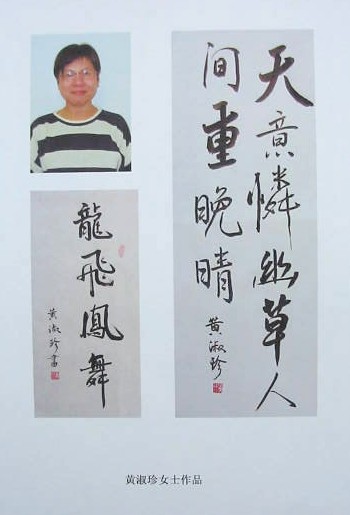 天意憐幽草人
间重晚晴
黄淑珍
龍飛鳳舞
黄淑珍書
黄淑珍女士作品